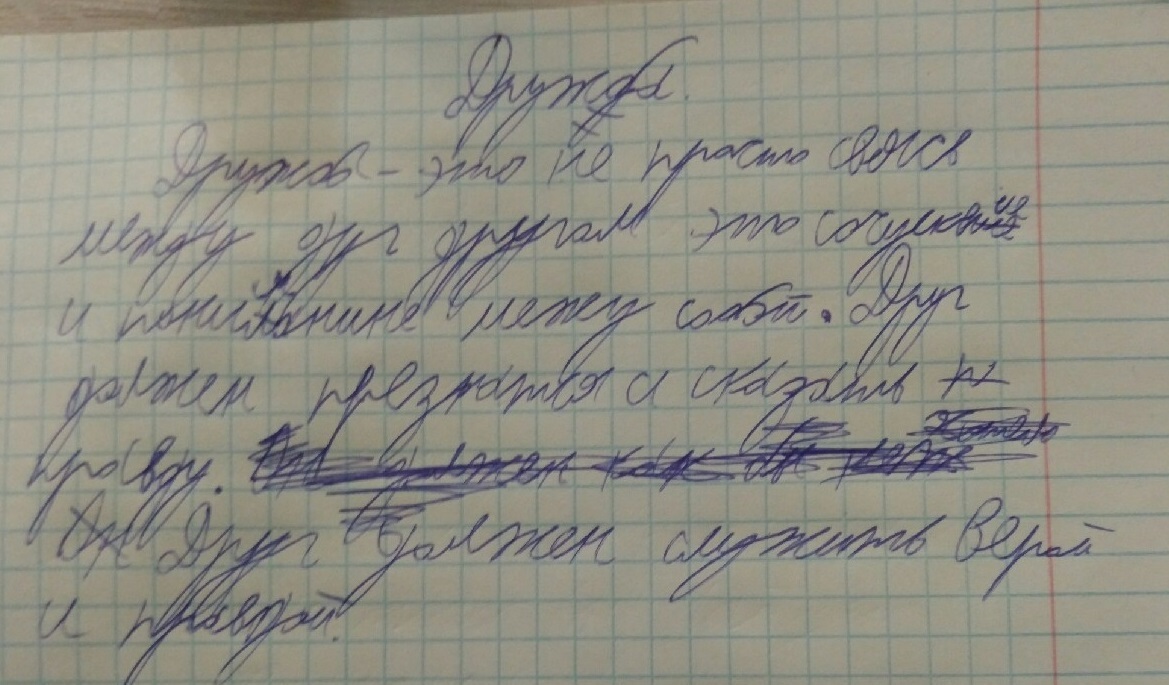 Дружба.
Дружба - это не просто связь
между друг другом это сочуение
и понимание межу собой. Друг
должен презнатся и сказать
правду.
Друг должен служить верой
и правдой.